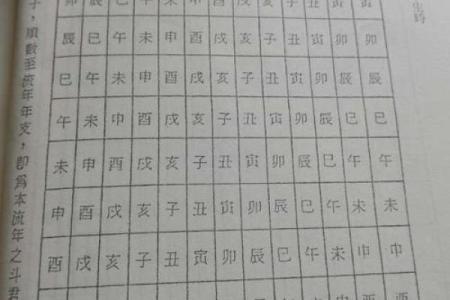 生時
辰 巳 午 未 申 酉 戌 亥 子 丑 寅 卯 卯
巳 午 未 申 酉 戌 亥 子 丑 寅 卯 辰 辰
午 未 申 酉 戌 亥 子 丑 寅 卯 辰 巳 巳
未 申 酉 戌 亥 子 丑 寅 卯 辰 巳 午 午
申 酉 戌 亥 子 丑 寅 卯 辰 巳 午 未 未
酉 戌 亥 子 丑 寅 卯 辰 巳 午 未 申 申
子，順數至流年年支，即爲本流年之斗君